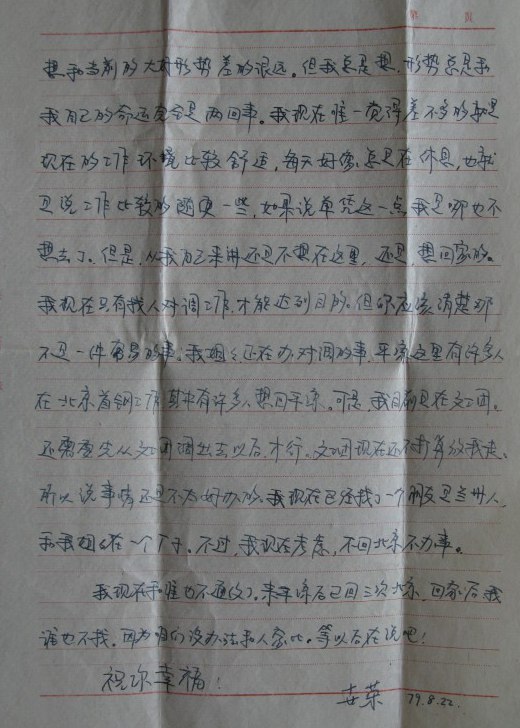 第 页
想和当前的大好形势差的很远。但我总是想，形势总是和
我自己的命运完全是两回事。我现在唯一觉得差不多的就是
现在的工作环境比较舒适，每天好像总是在休息，也就
是说工作比较的随便一些，如果说单凭这一点，我是哪也不
想去了。但是，从我自己来讲还是不想在这里，还是想回家的。
我现在只有找人对调工作，才能达到目的。但你应该清楚那
不是一件容易的事。我姐姐还在办对调的事，平 这里有许多人
在北京首钢工作，其中有许多人想回平 。可是，我目前是在文工团。
还需要先从文工团调出去以后，才行。文工团现在还不打算放我走，
所以说事情还是不太好办的。我现在已经找了一个朋友是 州人，
和我姐姐在一个厂子。不过，我现在考虑，不回北京不办事。
我现在和谁也不通信了。来平 后已回三次北京，回家后我
谁也不找。因为咱们没办法和人家比。等以后在说吧！
祝你幸福！
 荣 79.8.22.